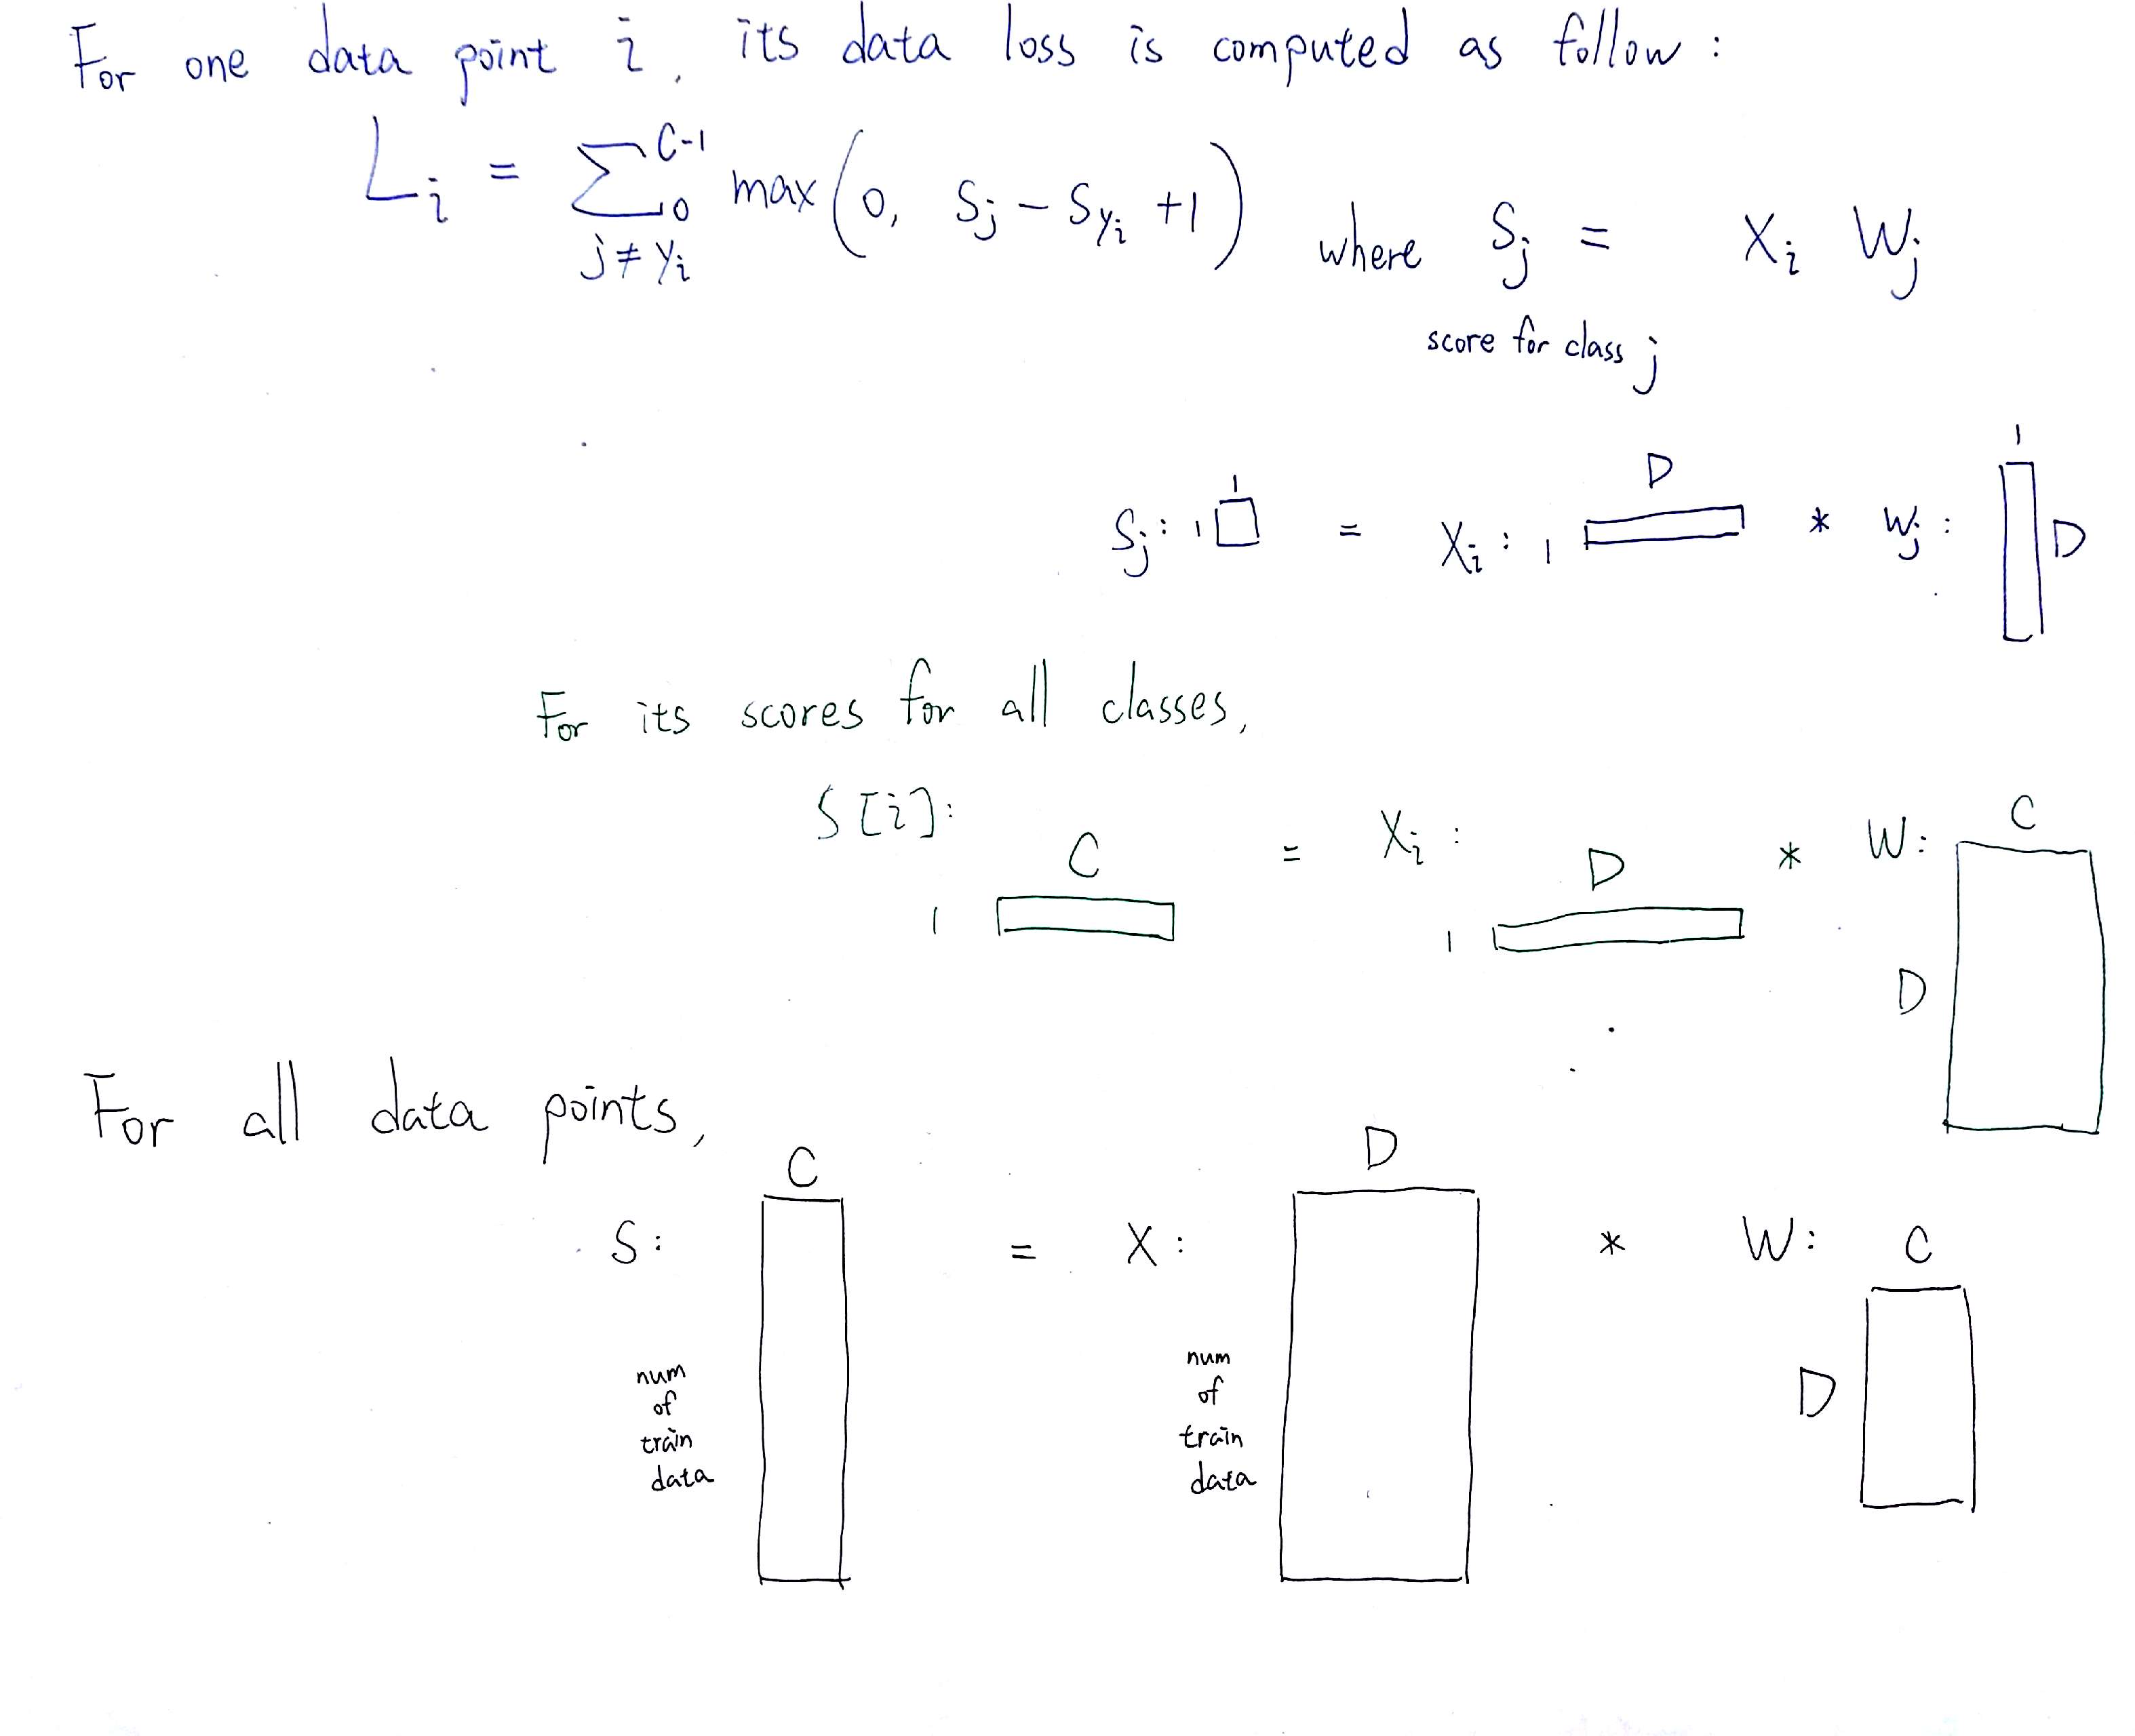 For one data point i, its data loss is computed as follow :
L_i = ∑_{0, j≠y_i}^{C-1} max(0, S_j - S_{y_i} +1) where S_j = X_i W_j
score for class j
S_j : 1 1 = X_i : 1 D * W_j : 1 D
For its scores for all classes,
S[i]: 1 C = X_i : 1 D * W: C D
For all data points,
S: C = X: D * W: C
num of train data
num of train data
D